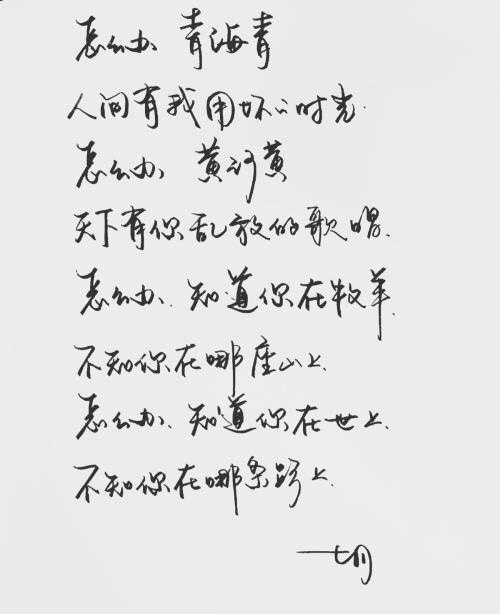 怎么办、青海青
人间有我用坏的时光.
怎么办、黄河黄
天下有你乱放的歌唱.
怎么办、知道你在牧羊.
不知你在哪座山上.
怎么办、知道你在世上.
不知你在哪条路上.
一七月